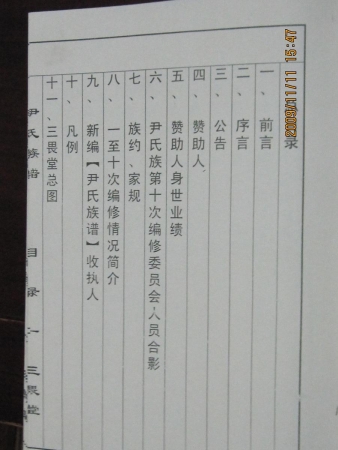 录
一、前言
二、序言
三、公告
四、赞助人
五、赞助人身世业绩
六、尹氏族第十次编修委员会人员合影
七、族约、家规
八、一至十次编修情况简介
九、新编【尹氏族谱】收执人
十、凡例
十一、三畏堂总图
尹氏族谱 目录 一 三畏堂
2009/11/11 15:47